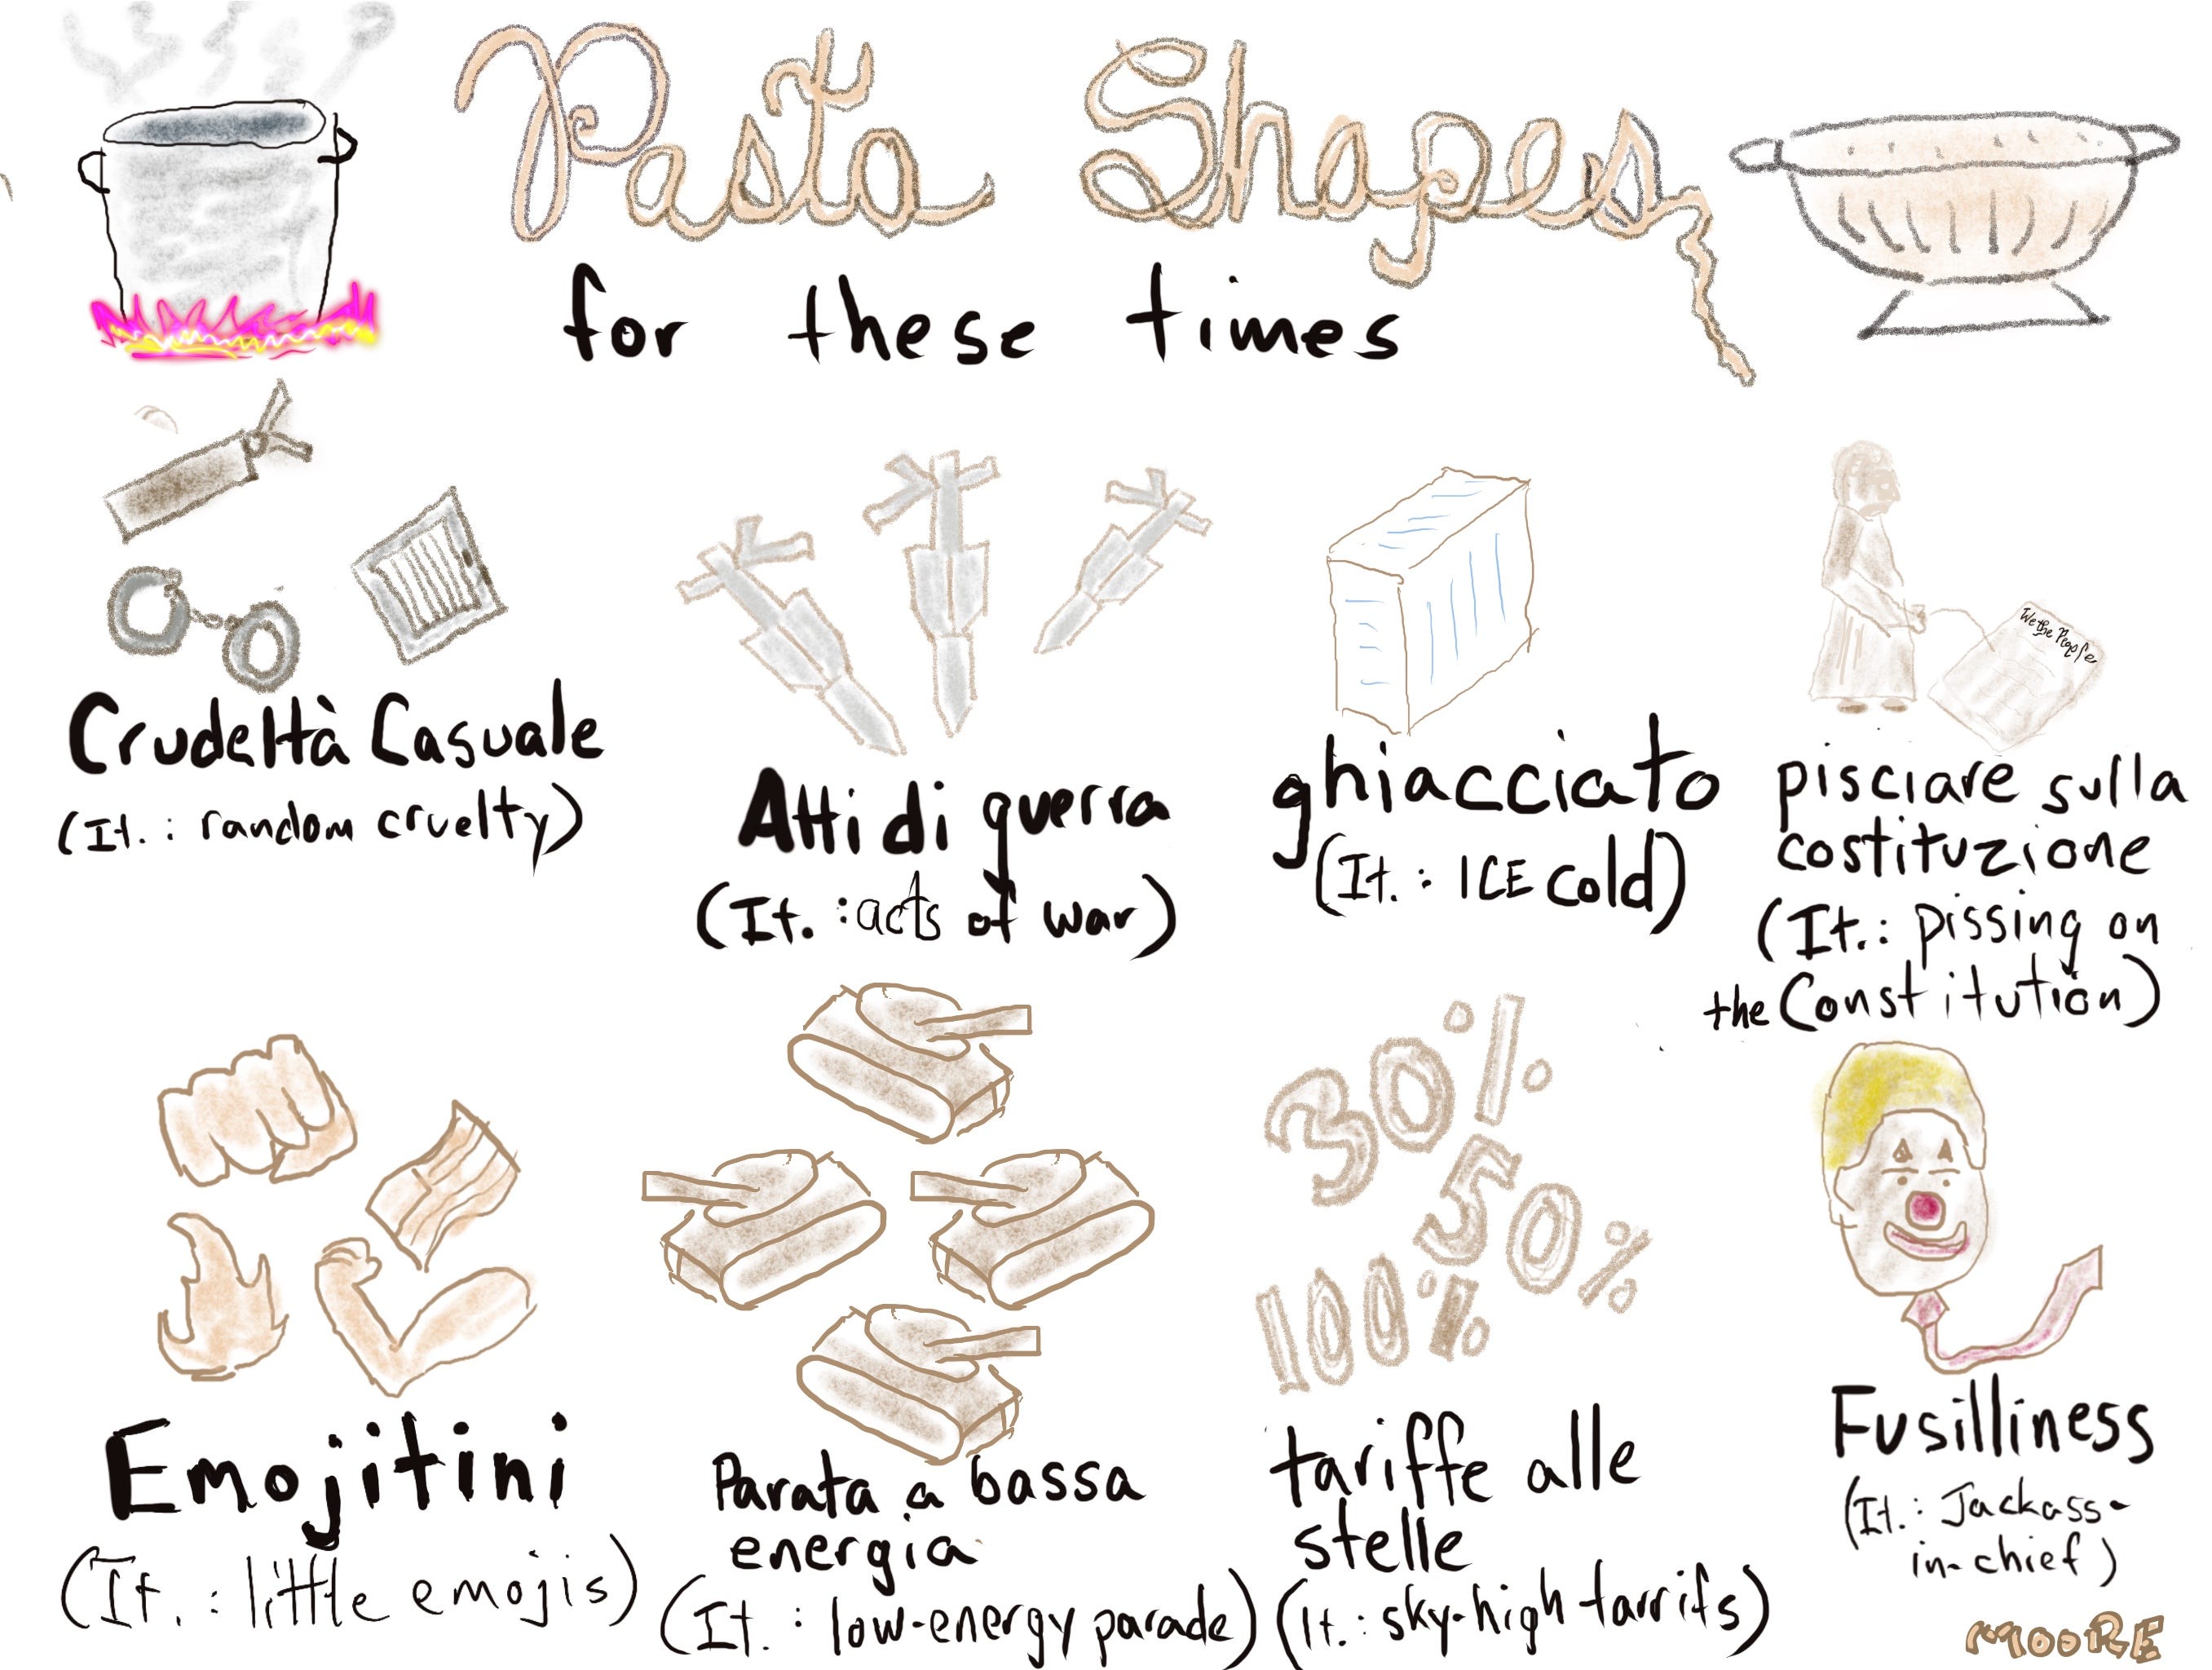 Pasta Shapes
for these times
We the People
Crudeltà Casuale
(It.: random cruelty)
Atti di guerra
(It.: acts of war)
ghiacciato
(It.: ICE cold)
pisciare sulla
costituzione
(It.: pissing on
the Constitution)
30%
50%
100%
Emojitini
(It.: little emojis)
Parata a bassa
energia
(It.: low-energy parade)
tariffe alle
stelle
(It.: sky-high tarrifs)
Fusilliness
(It.: Jackass-
in-chief)
MOORE